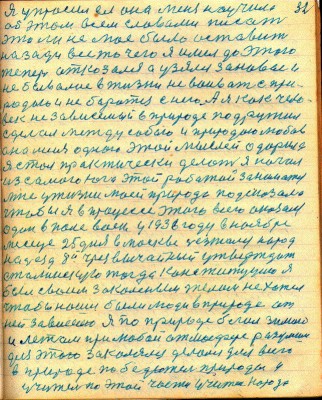 32
Я упросил ея она меня научила
об этом всем словами писат
это ли не мое было оставит
назади все то чего я имел до этого
тепер отказался а узялся за новое и
не бывалое в жизни не воиват с при-
родою и не боротся с нею. А я как чело-
век не зависемый в природе подружил
сделал между собою и природою любов
она меня одною этой мыслей одарила
я стал практически делат я начал
из самого юга этой работай заниматся
мне у жизни моей природа подсказала
чтобы я в процессе этого всего оказался
один в поле воен у 1936 году в ноябре
месяце 25 дня в москве уезжал народ
на узезд 8й чрезвычайный утверждат
сталинскую тогда Конституцию я
был своим закаленым телом не хотел
чтобы наши были люди в природе от
ней зависемо Я по природе ходил зимою
и летом при любой атмосфере разумом
для этого закалялся делом для всего
в природе победител природы я
учител по этой части учител народа